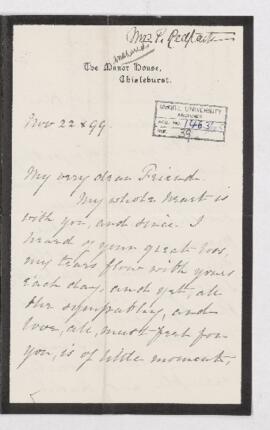 Mrs P. Redpath
The Manor House,
Chislehurst.
McGILL UNIVERSITY
ARCHIVES
ACC. NO. 1463
REF. 39
Nov 22 & 99.
My very dear Friend.
My whole heart is
with you, and since I
heard of your great loss,
my tears flow with yours
each day, and yet, all
the sympathy, and
love, all, must feel for
you, is of little moment,